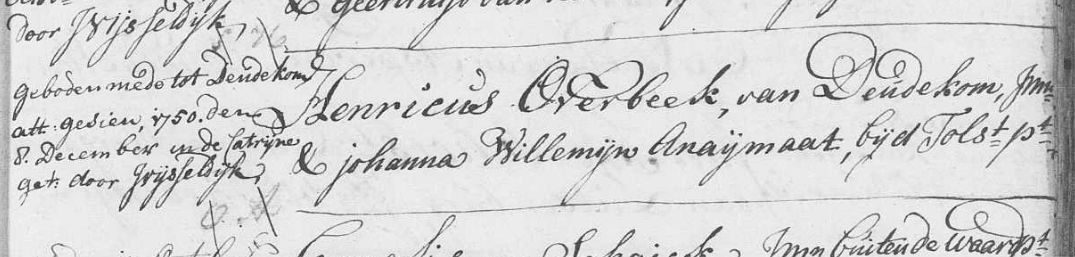 door IVijsseldijk
& geertruijd van
geboden mede tot Deudekom
att: gesien, 1750. den
8. December in de Catrijne
get: door Jvijsseldijk,
Henricus Overbeek, van Deudekom, Jmn
& johanna Willemijn Anaÿmaat, bijd Tolst. pt.
Schaick, Jmn buiten de waard pt.